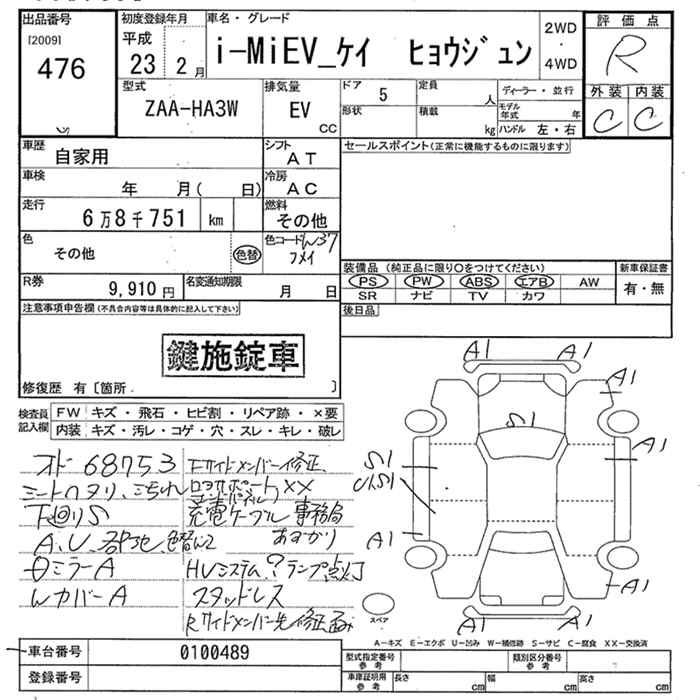 出品番号
[2009]
476
初度登録年月
平成
23 2月
車名・グレード
i-MiEV_ケイ ヒョウジュン
2WD
・
4WD
評価点
R
外装 内装
C C
型式
ZAA-HA3W
排気量
EV
CC
ドア 5
形状
定員
人
積載
kg
ディーラー・並行
モデル年式 年
ハンドル 左・右
車歴
自家用
シフト
AT
車検
年 月( 日)
冷房
AC
走行
6万8千751 km
燃料
その他
色
その他
色替
色コード W37
フメイ
R券
9,910円
名変通知期限
月 日
セールスポイント(正常に機能するものに限ります)
装備品(純正品に限り○をつけてください)
PS PW ABS エアB AW
SR ナビ TV カワ
新車保証書
有・無
後日品
注意事項申告欄(不具合内容等は具体的に記入して下さい)
鍵施錠車
修復歴 有〔箇所 〕
検査員記入欄
FW キズ・飛石・ヒビ割・リペア跡・×要
内装 キズ・汚レ・コゲ・穴・スレ・キレ・破レ
オド 68753
下廻りS
A、U、
ミラーA
WカバーA
Fサイドメンバー修正、
充電ケーブル 事務局
あずかり
HVシステム?ランプ点灯
スタッドレス
Rサイドメンバー先修正済み
A1 A1
A1
S1
A1
S1
A1
A1
U1 A1
スペア
A-キズ E-エクボ U-凹み W-補修跡 S-サビ C-腐食 XX-交換済
車台番号 0100489
登録番号
型式指定番号 参考
類別区分番号 参考
車庫証明用 参考
長さ cm
幅 cm
高さ cm